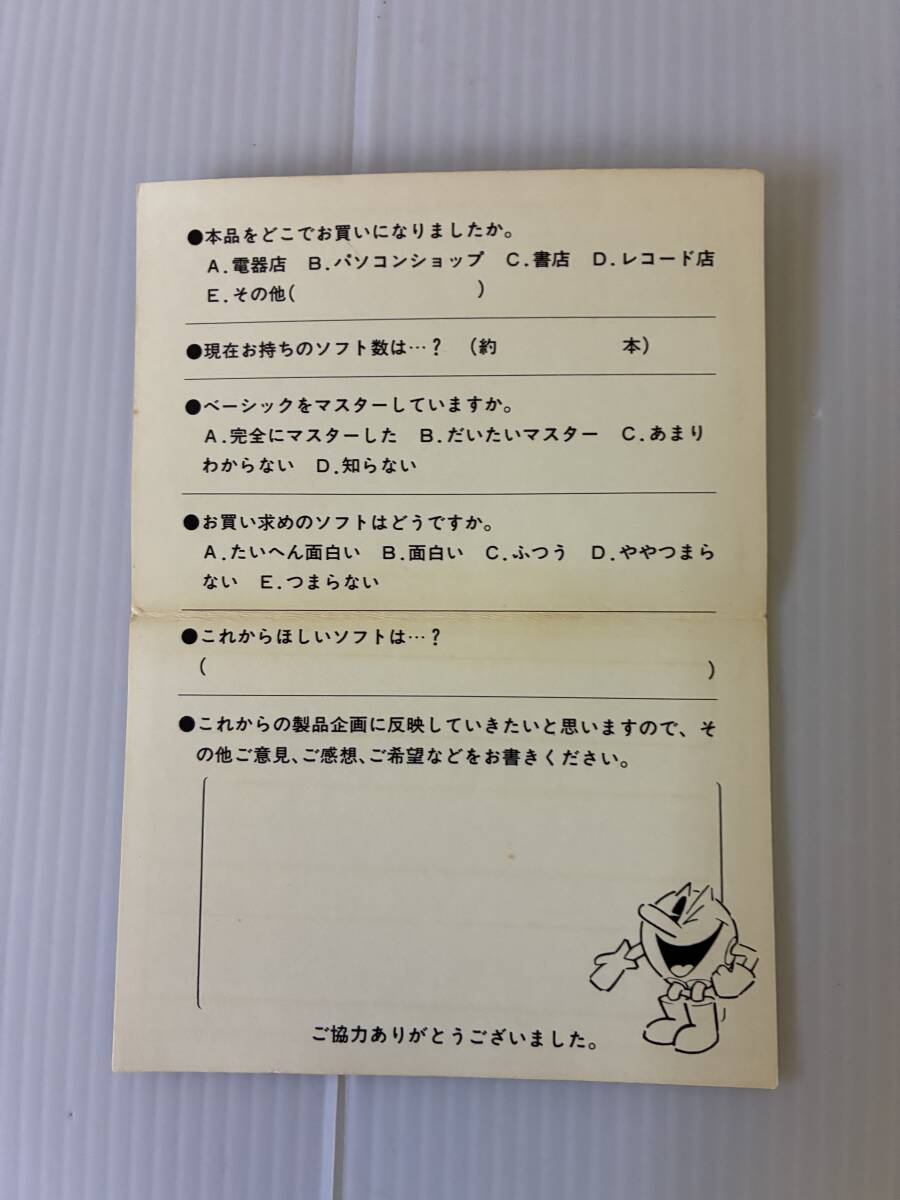 ●本品をどこでお買いになりましたか。
A.電器店 B.パソコンショップ C.書店 D.レコード店
E.その他( )
●現在お持ちのソフト数は…? (約 本)
●ベーシックをマスターしていますか。
A.完全にマスターした B.だいたいマスター C.あまり
わからない D.知らない
●お買い求めのソフトはどうですか。
A.たいへん面白い B.面白い C.ふつう D.ややつまら
ない E.つまらない
●これからほしいソフトは…?
( )
●これからの製品企画に反映していきたいと思いますので、そ
の他ご意見、ご感想、ご希望などをお書きください。
ご協力ありがとうございました。